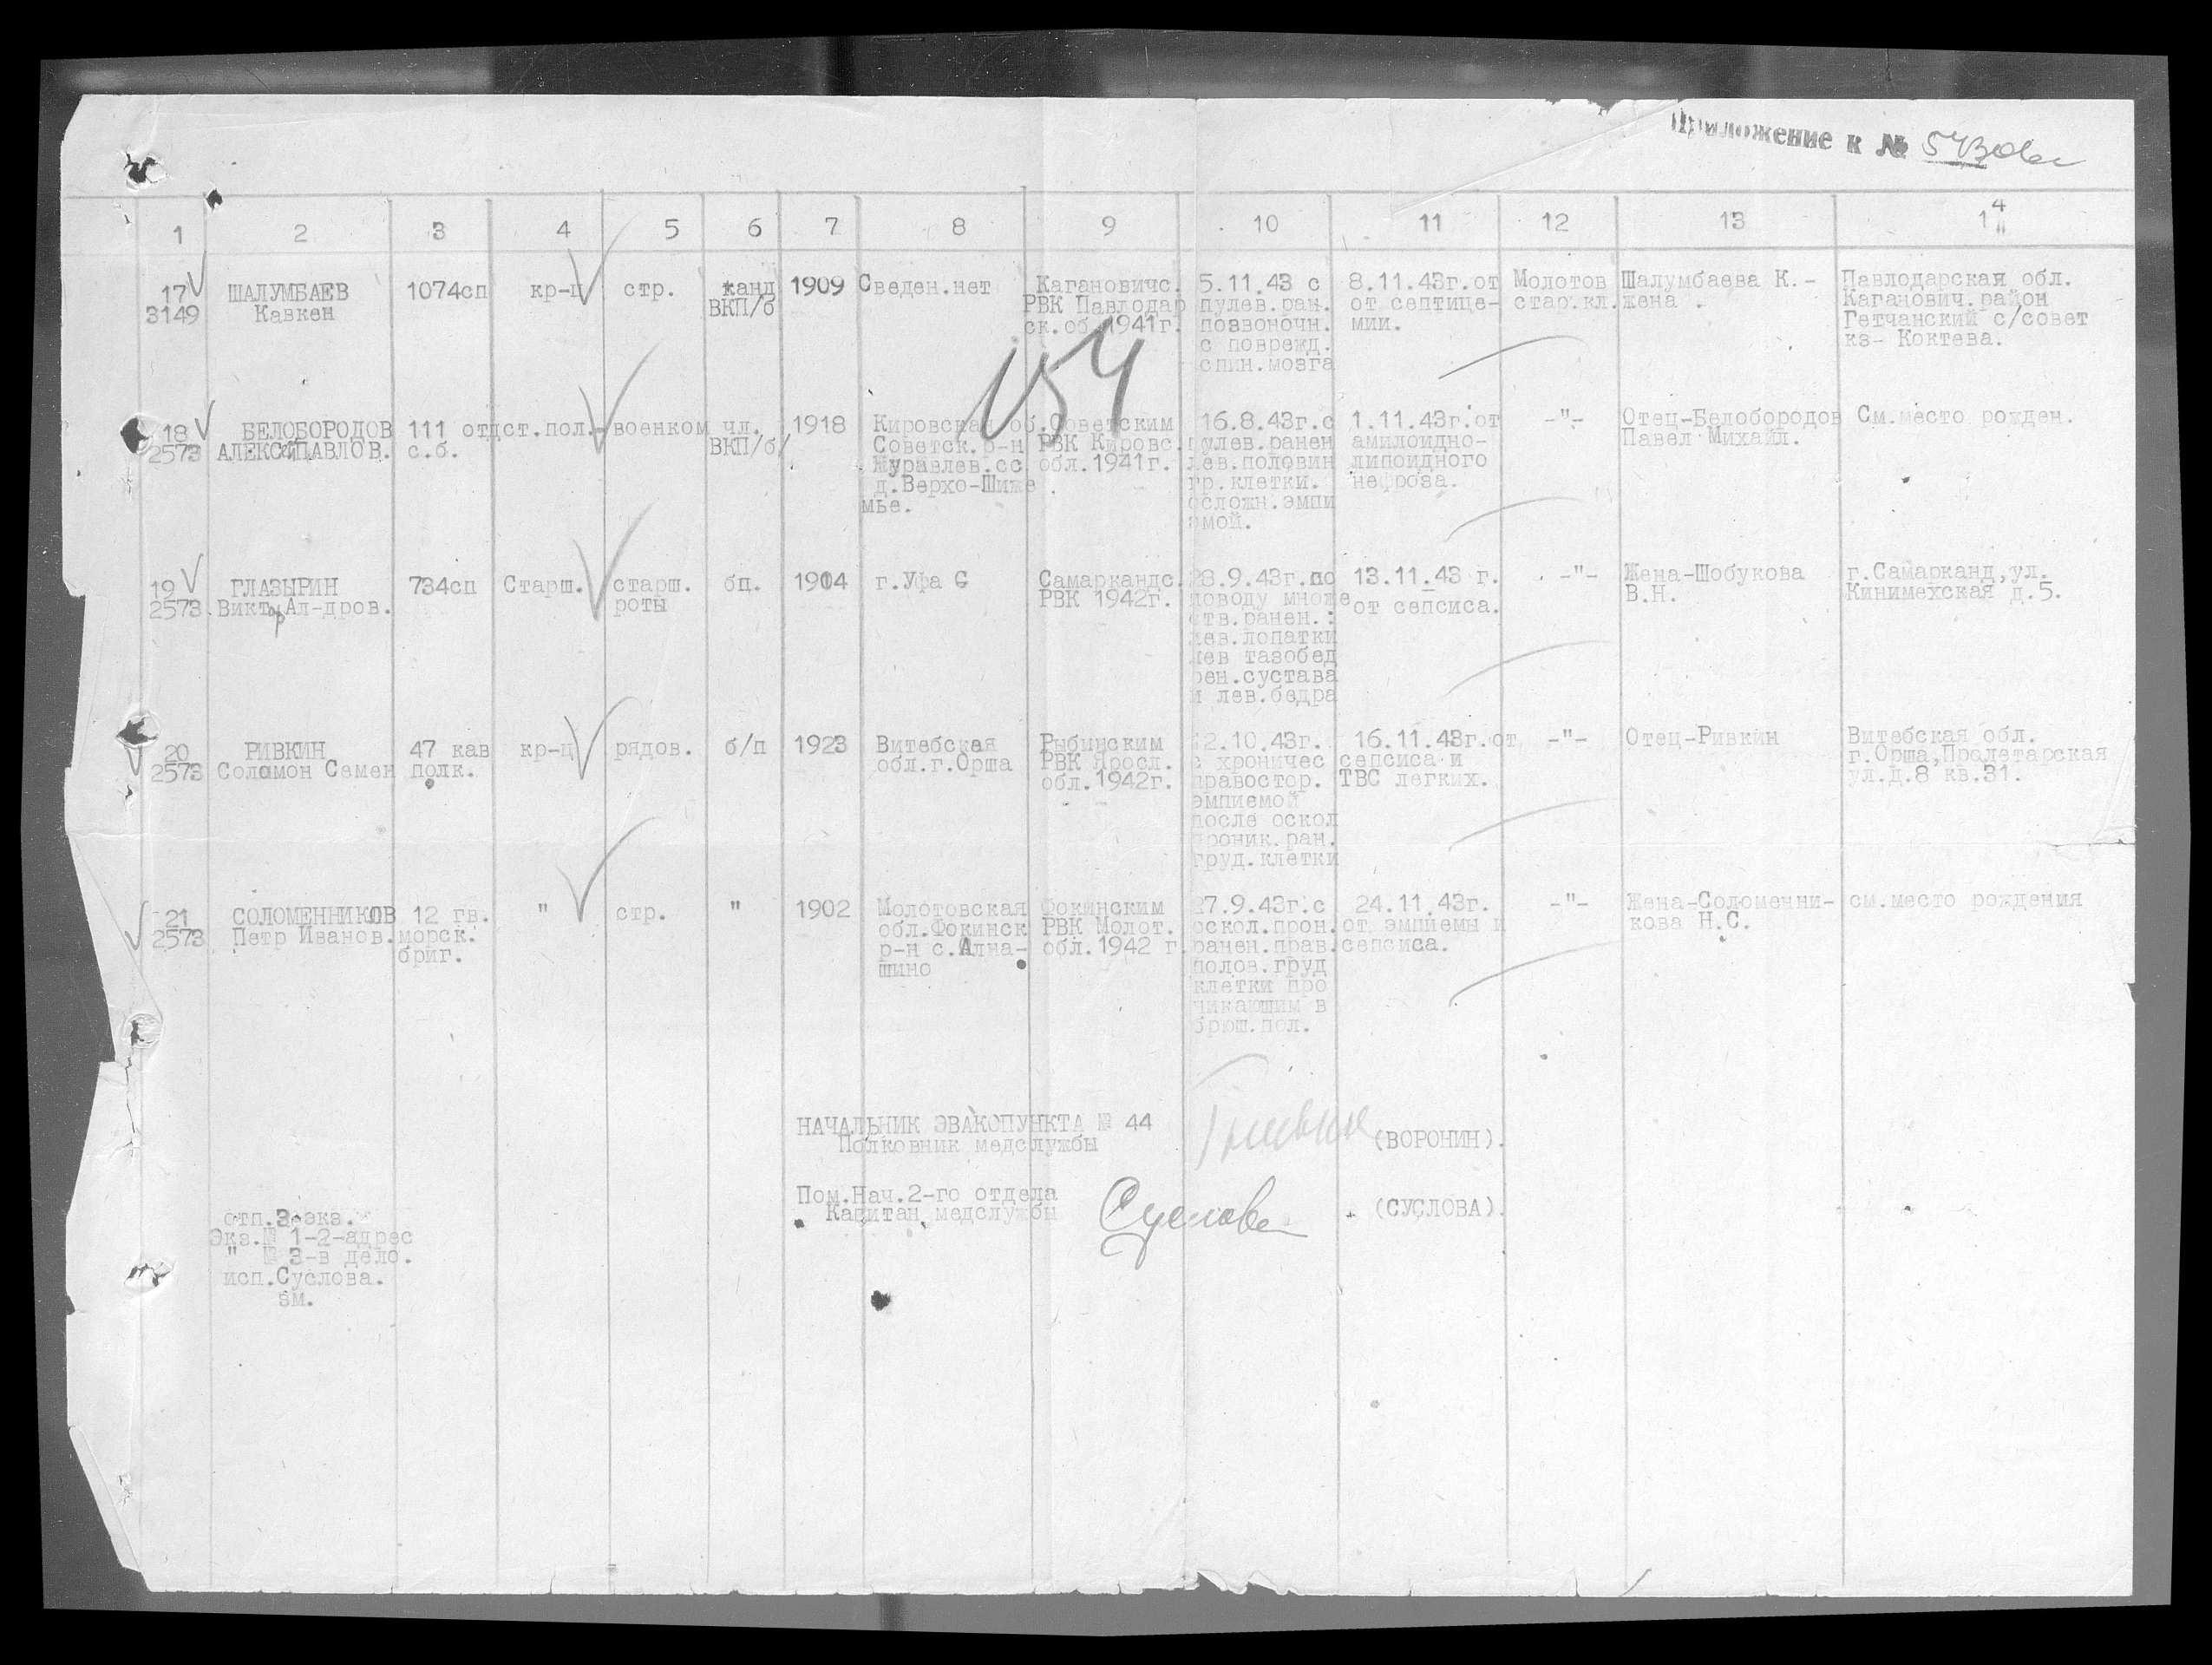 Приложение к № 543
1 2 3 4 5 6 7 8 9 10 11 12 13 14
"
17
3149
ШАЛУМБАЕВ
Кавкен
1074сп
кр-ц
стр.
канд
ВКП/б
1909
Сведен.нет
Кагановичс.
РВК Павлодар
ск.об. 1941г.
5.11.43 с
пулев.ран.
позвоночн.
с поврежд.
спин.мозга
8.11.43г.от
от септице-
мии.
Молотов
стар.кл.
Шалумбаева К.-
жена .
Павлодарская обл.
Каганович.район
Гетчанский с/совет
кз- Коктева.
154
18
2573
БЕЛОБОРОДОВ
АЛЕКСЕЙ ПАВЛОВ.
111 отд
с.б.
ст.пол.-
военком
чл.
ВКП/б/
1918
Кировская об.
Советск.р-н
Журавлев.сс
д.Верхо-Шиже
мье.
Советским
РВК Кировс.
обл.1941г.
16.8.43г.с
пулев.ранен
лев.половин
гр.клетки.
осложн.эмпи
эмой.
1.11.43г.от
амилоидно-
липоидного
нефроза.
-"-
Отец-Белобородов
Павел Михайл.
См.место рожден.
19
2573
ГЛАЗЫРИН
Виктор Ал-дров.
734сп
Старш.
старш.
роты
бп.
1904
г.Уфа С
Самаркандс.
РВК 1942г.
28.9.43г.по
поводу множе
ств.ранен.:
лев.лопатки
лев тазобед
рен.сустава
и лев.бедра
13.11.43 г.
от сепсиса.
-"-
Жена-Шобукова
В.Н.
г.Самарканд,ул.
Кинимехская д.5.
20
2573
РИВКИН
Соломон Семен
47 кав
полк.
кр-ц
рядов.
б/п
1923
Витебская
обл.г.Орша
Рыбинским
РВК Яросл.
обл.1942г.
12.10.43г.
с хроничес
правостор.
эмпиемой
после оскол
проник.ран.
груд.клетки
16.11.43г.от
сепсиса и
ТВС легких.
-"-
Отец-Ривкин
Витебская обл.
г.Орша,Пролетарская
ул.д.8 кв.31.
21
2573
СОЛОМЕННИКОВ
Петр Иванов.
12 гв.
морск.
бриг.
"
стр.
"
1902
Молотовская
обл.Фокинск
р-н с.Ална-
шино
Фокинским
РВК Молот.
обл.1942 г.
27.9.43г.с
оскол.прон.
ранен.прав.
полов.груд
клетки про
никающим в
брюш.пол.
24.11.43г.
от эмпиемы и
сепсиса.
-"-
Жена-Соломенни-
кова Н.С.
см.место рождения
НАЧАЛЬНИК ЭВАКОПУНКТА № 44
Полковник медслужбы
(ВОРОНИН).
Пом.Нач.2-го отдела
Капитан медслужбы
Суслова
(СУСЛОВА).
отп.3 экз.
Экз.№ 1-2-адрес
" № 3-в дело.
исп.Суслова.
зм.